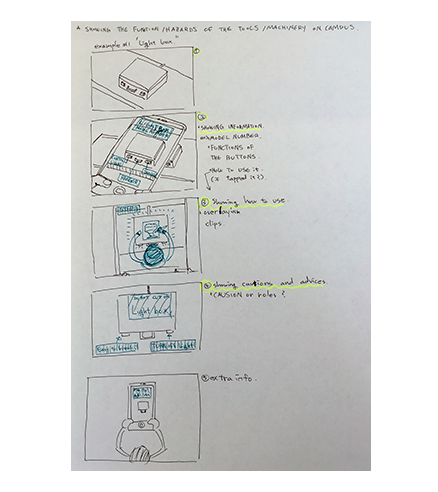 * SHOWING THE FUNCTION/HAZARDS OF THE TOOLS/MACHINERY ON CAMPUS.
example #1 "Light box."
①
②
* SHOWING INFORMATION
MODEL NUMBER
* FUNCTIONS OF
THE BUTTONS.
* HOW TO USE it.
tapped it?)
③ showing how to use
overlaying
clips.
④ showing cautions and advices.
* CAUSION or roles?
Light box
⑤ extra info.